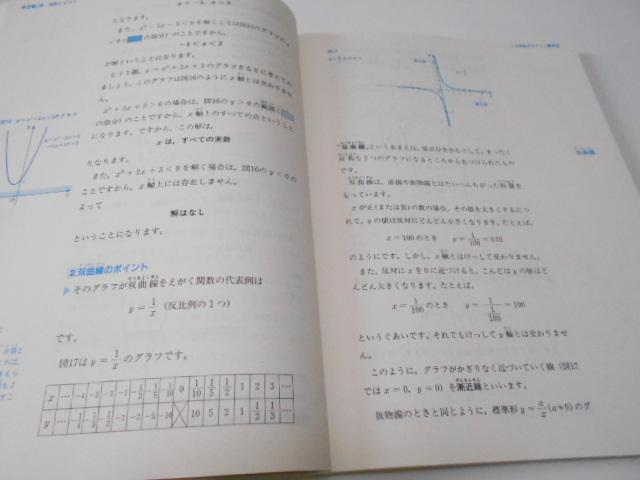 となります。
また、x²－2x－3＜0を解くことは図15のグラフのy
＜0（
の部分）のことですから、
－1＜x＜3
が解ということになります。
もう1題、y＝x²＋2x＋3のグラフをもとに考えてみ
ましょう。このグラフは図16のようにx軸とは交わりませ
ん。
x²＋2x＋3＞0の場合は、図16のy＞0の範囲
の部分）のことですから、x軸上のすべての点ということ
になります。ですから、この解は、
xは、すべての実数
となります。
また、x²＋2x＋3＜0を解く場合は、図16のy＜0の
ことですから、x軸上には存在しません。
よって
解はなし
ということになります。
2 双曲線のポイント
▶そのグラフが双曲線をえがく関数の代表例は
y＝1/x（反比例の1つ）
です。
図17はy＝1/xのグラフです。
x … －4 －3 －2 －1 －1/2 －1/5 －1/10 0 1/10 1/5 1/2 1 2 3 …
y … －1/4 －1/3 －1/2 －1 －2 －5 －10 10 5 2 1 1/2 1/3 …
図17
双曲線という名まえは、原点Oを中心として、まったく
対称な2つのグラフになるところから名づけられたもの
です。
双曲線
双曲線は、直線や放物線とはたいへんちがった性質を
もっています。
xが正（または負）の数の場合、その値を大きくするにつ
れて、yの値は反対にどんどん小さくなります。たとえば、
x＝100のとき y＝1/100＝0.01
のようにです。しかし、x軸とはけっして交わりません。
また、反対にxを0に近づけると、こんどはyの値はど
んどん大きくなります。たとえば、
x＝1/100のとき y＝1/(1/100)＝100
というぐあいです。それでもけっしてy軸とは交わりませ
ん。
このように、グラフがかぎりなく近づいていく線（図17
ではx＝0、y＝0）を漸近線といいます。
放物線のときと同じように、標準形y＝a/x（a≠0）のグ